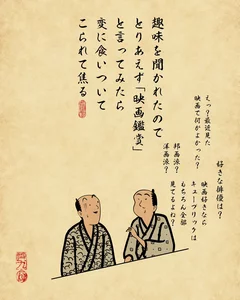 趣味を聞かれたので
とりあえず「映画鑑賞」
と言ってみたら
変に食いついて
こられて焦る
好きな俳優は?
えっ?最近見た
映画で何がよかった?
邦画派?
洋画派?
映画好きなら
キューブリックは
もちろん全部
見てるよね?